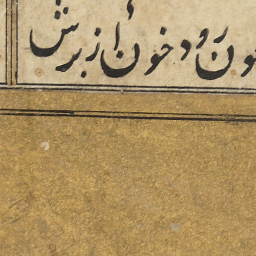 خون رود خون از برش